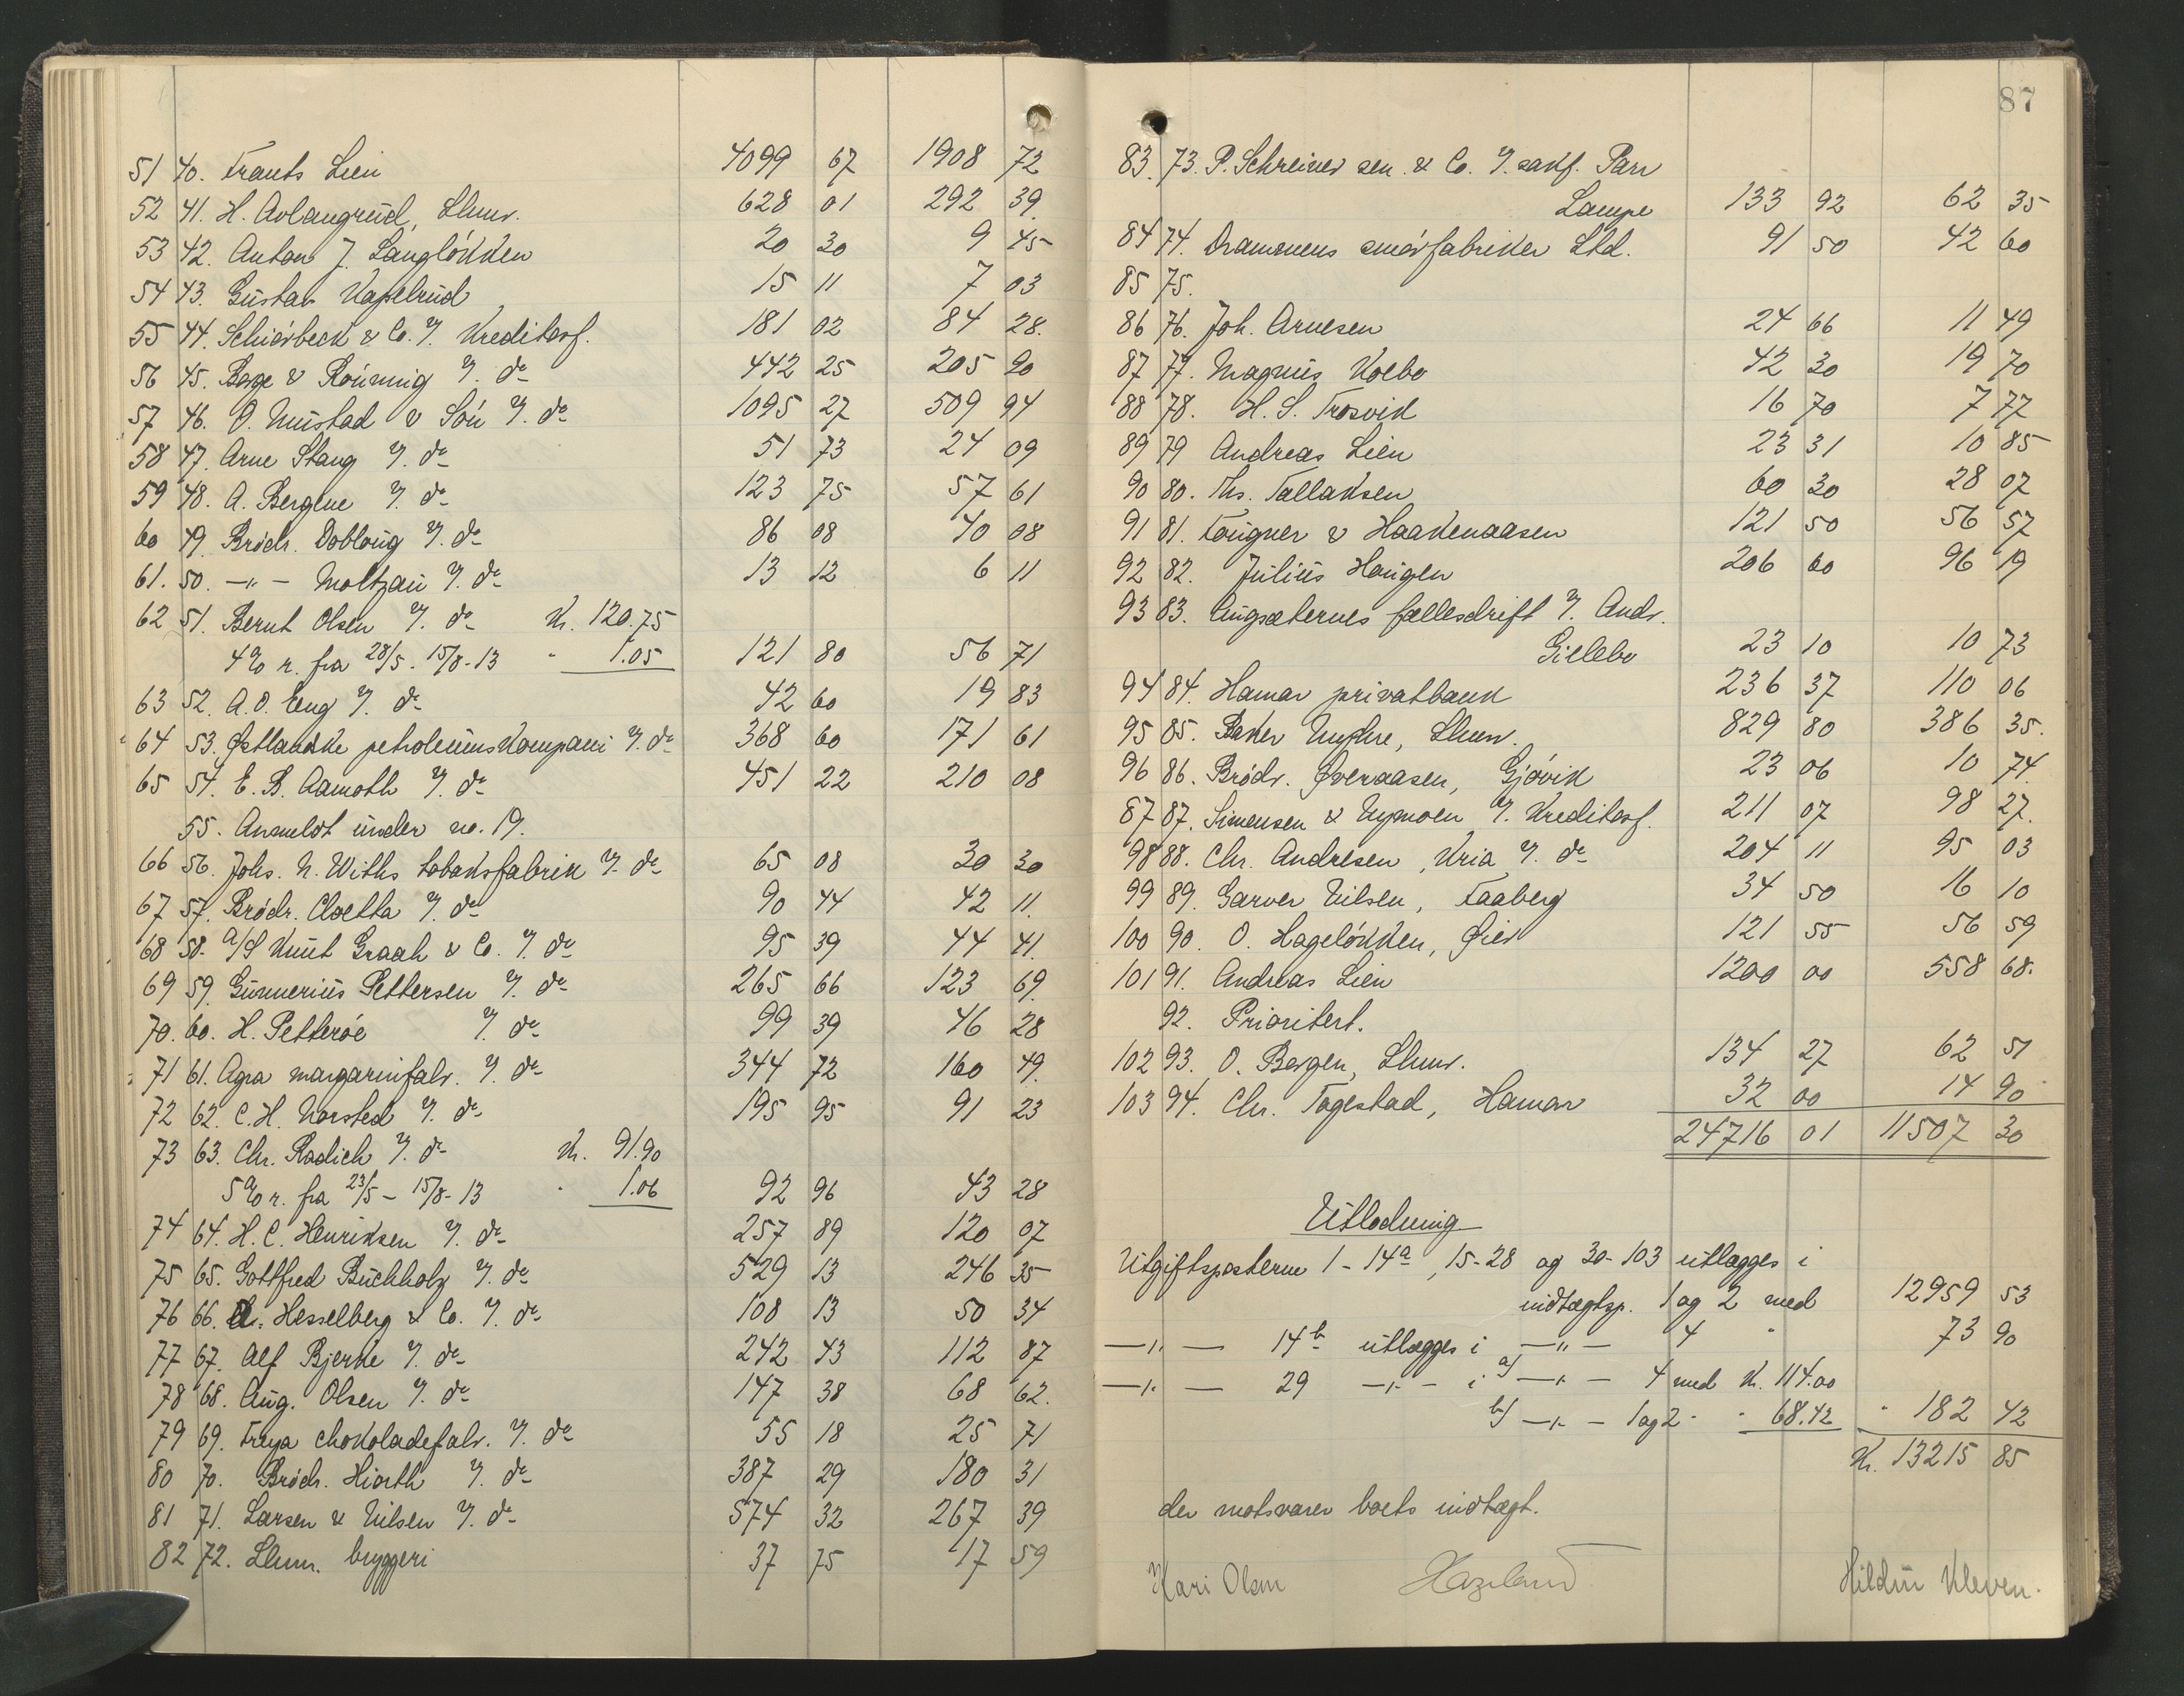 51 40. Frants Lien 4099 67 1908 72
52 41. H. Avlangrud, Lhmr. 628 01 292 39.
53 42. Anton J. Langløkken 20 30 9 45
54 43. Gustav Kapelrud 15 11 7 03
55 44. Schiørbeck & Co. v. Kreditorf. 181 02 84 28.
56 45. Bage & Rønning v. do 442 25 205 90
57 46. O. Mustad & Søn v. do 1095 27 509 94
58 47. Arne Stang v. do 51 73 24 09
59 48. A. Bergene v. do 123 75 57 61
60 49. Brødr. Dobloug v. do 86 08 40 08
61. 50. —"— Moltzau v. do 13 12 6 11
62 51. Bernt Olsen v. do Kr. 120.75
4% r. fra 28/5 - 15/8-13 " 1.05 121 80 56 71
63 52. A.O. Eng v. do 42 60 19 83
64 53. Østlandske petroleumskompani v. do 368 60 171 61
65 54. E. B. Aamoth v. do 451 22 210 08
55. Anmeldt under no. 19.
66 56. Johs. N. Withs tobaksfabrik v. do 65 08 30 30
67 57. Brødr. Cloetta v. do 90 44 42 11.
68 58. A/S Knut Graah & Co. v. do 95 39 44 41.
69 59. Gunnerius Pettersen v. do 265 66 123 69.
70. 60. H. Petterøe v. do 99 39 46 28
71 61. Agra margarinfabr. v. do 344 72 160 49.
72 62. C. H. Norsted v. do 195 95 91 23
73 63. Chr. Radich v. do Kr. 91.90
5% r. fra 23/5 - 15/8-13 " 1.06 92 96 43 28
74 64. H. C. Henriksen v. do 257 89 120 07
75 65. Gottfred Buchholz v. do 529 13 246 35
76 66. Hesselberg & Co. v. do 108 13 50 34
77 67. Alf Bjerke v. do 242 43 112 87
78 68. Aug. Olsen v. do 147 38 68 62.
79 69. Freya chokoladefabr. v. do 55 18 25 71
80 70. Brødr. Hiorth v. do 387 29 180 31
81 71. Larsen & Nilsen v. do 574 32 267 39
82 72. Lhmr. bryggeri 37 75 17 59
87
83. 73. P. Schreiner sen. & Co. v. sakf. Parr
Lampe 133 92 62 35
84 74. Drammens smørfabriker Ltd. 91 50 42 60
85 75.
86 76. Joh. Arnesen 24 66 11 49
87 77. Magnus Kolbo 42 30 19 70
88 78. H. S. Trosvik 16 70 7 77
89 79 Andreas Lien 23 31 10 85
90 80. Ths. Tallaksen 60 30 28 07
91 81. Fougner & Haakenaasen 121 50 56 57
92 82. Julius Haugen 206 60 96 19
93 83. Augsæternes fællesdrift v. Andr.
Gillebo 23 10 10 73
94 84. Hamar privatbank 236 37 110 06
95 85. Baker Myhre, Lhmr. 829 80 386 35.
96 86. Brødr. Øveraasen, Gjøvik 23 06 10 74.
87 87. Simensen & Nymoen v. Kreditorf. 211 07 98 27.
98 88. Chr. Andresen, Kria v. do 204 11 95 03
99 89. Garver Nilsen, Faaberg 34 50 16 10
100 90. O. Hageløkken, Øier 121 55 56 59
101 91. Andreas Lien 1200 00 558 68.
92. Prioritert.
102 93. O. Bergen, Lhmr. 134 27 62 51
103 94. Chr. Togestad, Hamar 32 00 14 90
24716 01 11507 30
Utlodning
Utgiftsposterne 1 - 14a, 15-28 og 30-103 utlægges i
indtægtsp. 1 og 2 med 12959 53
—"— 14b utlægges i —"— 4 " 73 90
—"— 29 —"— i a) —"— 4 med Kr. 114.00
b) —"— 1 og 2 " " 68.42 " 182 42
Kr. 13215 85
der motsvarer boets indtægt.
Kari Olsen Hildur Kleven.